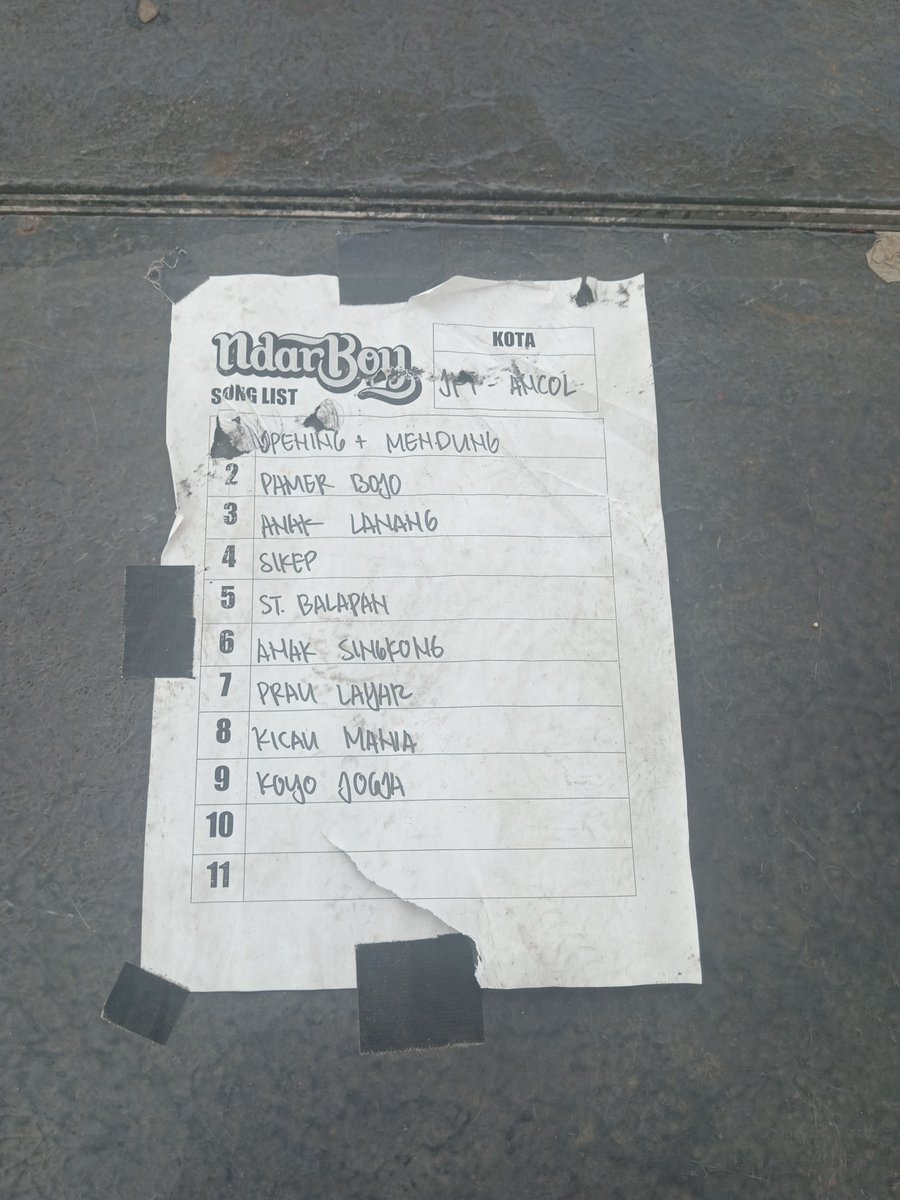 NdarBoy
SONG LIST
KOTA
ANCOL
OPENING + MENDUNG
2 PAMER BOJO
3 ANAK LANANG
4 SIKEP
5 ST. BALAPAN
6 ANAK SINGKONG
7 PRAU LAYAR
8 KICAU MANIA
9 KOYO JOGJA
10
11